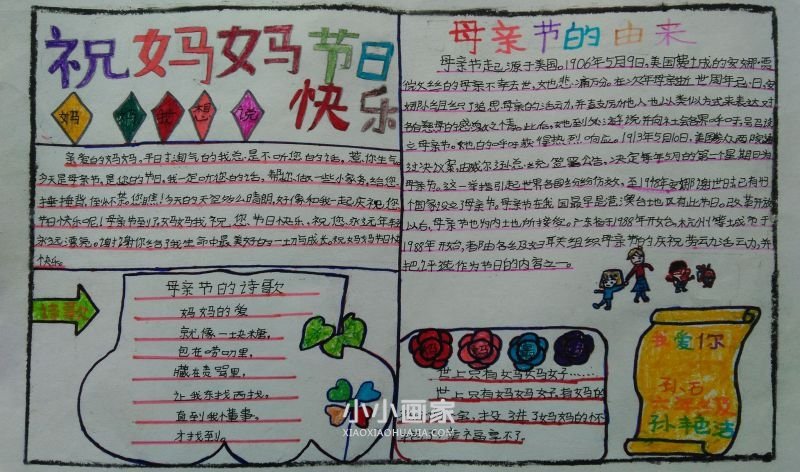 祝妈妈节日
快乐
妈 妈 我 想 说
亲爱的妈妈,平日淘气的我总是不听您的话,惹你生气,
今天是母亲节,是您的节日,我一定听您的话,帮你做一些小家务,给您
捶捶背,
节日快乐呢!母亲节到了,妈妈我祝您,节日快乐,祝您,永远年轻
永远漂亮。谢谢你给了我生命中最美好的一切与成长。祝妈妈节日快
快乐。
母亲节的诗歌
妈妈的爱
就像一块糖,
包在唠叨里,
藏在责骂里,
让我东找西找,
直到我懂事。
才找到。
母亲节的由来
母亲节起源于美国。1906年5月9日,美国费城的安娜·贾
维斯的母亲不幸去世,她悲痛万分。在次年母亲逝世周年忌日,安
娜组织了追思母亲的活动,并鼓励他人也以类似方式来表达对
各自慈母的感激之情。此后,她到处游说并向社会各界呼吁,号召设
立母亲节。她的呼吁获得热烈响应。1913年5月10日,美国参众两院通
过决议案,由威尔逊总统签署公告,决定每年5月的第一个星期日为
母亲节。这一举措引起世界各国纷纷仿效,至1948年安娜谢世时,已有43
个国家设立了母亲节。母亲节在我国最早是港澳台地区有此节日。改革开放
以后,母亲节也为内地所接受。广东省于1988年开始,杭州
1988年开始,都由各级妇联组织母亲节的庆祝活动,并
把评选作为节日的内容之一。
世上只有妈妈好……
世上只有妈妈好,有妈的
投进了妈妈的怀
幸福享不了。
我爱你
小小画家
XIAOXIAOHUAJIA.COM